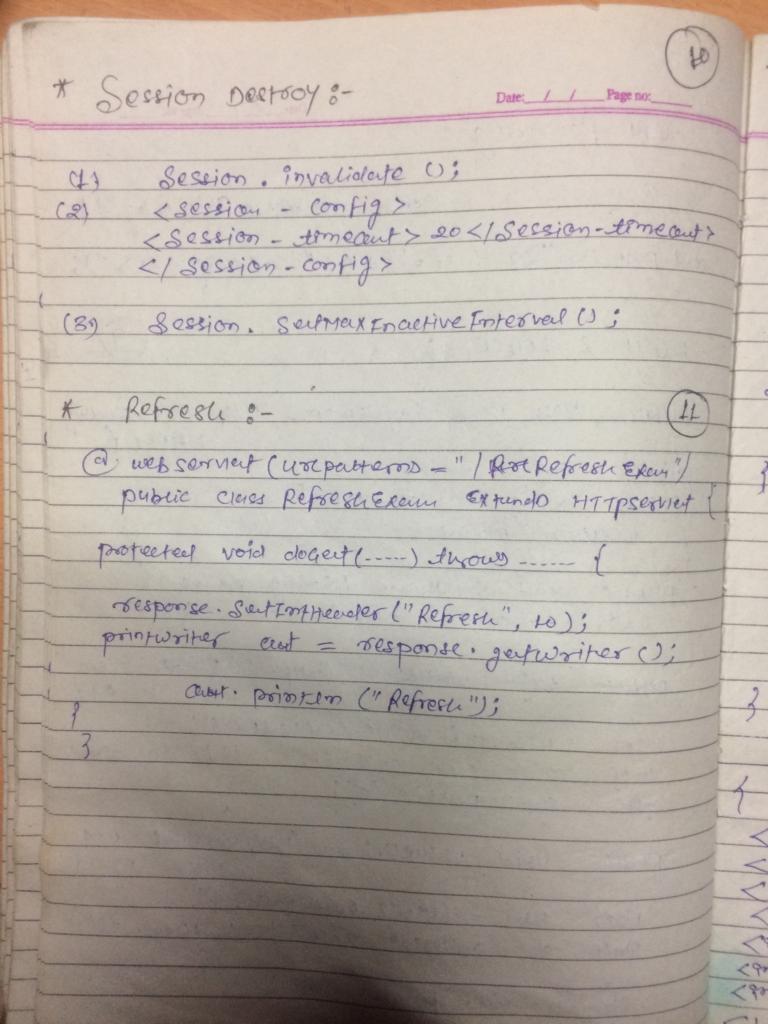 10
* Session Destroy :-
Date: / / Page no:
(1) Session . invalidate ();
(2) <Session - config>
<Session - timeout> 20 </Session-timeout>
</ Session - config>
(3) Session. SetMaxInactiveInterval () ;
* Refresh :-
11
@ webservlet (urlpatterns = " / RefreshExam")
public class RefreshExam Extends HTTPservlet {
protected void doGet (-----) throws ------ {
response. SetIntHeader ("Refresh", 10);
printwriter out = response. getwriter ();
out. println ("Refresh");
}
}
}
{
<
<
<
<
<